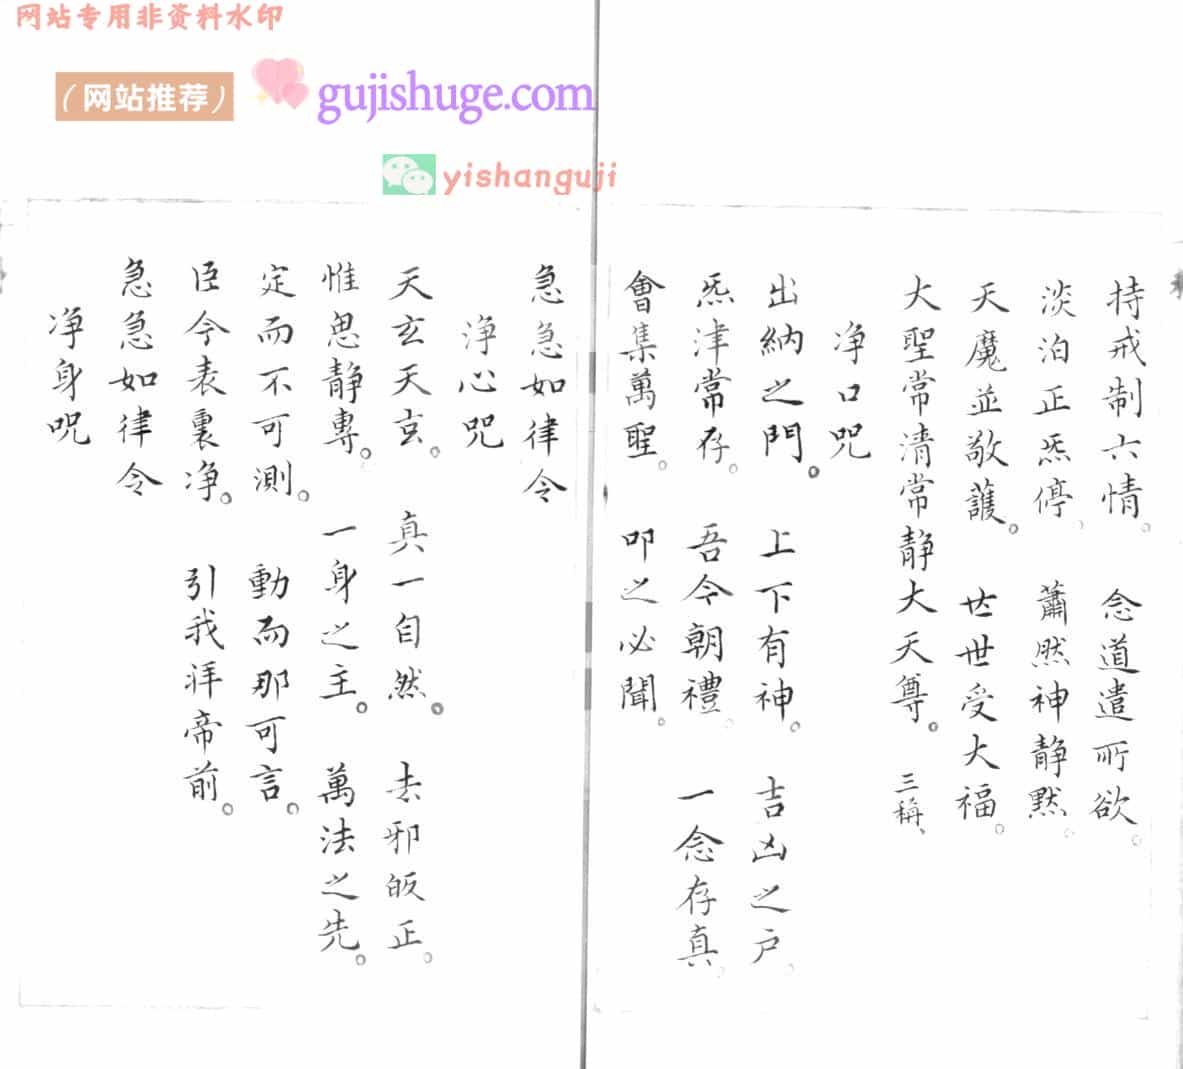 网站专用非资料水印
（网站推荐）
gujishuge.com
yishanguji
持戒制六情。念道遣所欲。
淡泊正炁停。蕭然神静黙。
天魔並敬護。世世受大福。
大聖常清常静大天尊。三稱、
净口咒
出納之門。上下有神。吉凶之户。
炁津常存。吾今朝禮。一念存真。
會集萬聖。叩之必聞。
急急如律令
浄心咒
天玄天玄。真一自然。去邪皈正。
惟思静專。一身之主。萬法之先。
定而不可測。動而那可言。
臣今表裏净。引我拜帝前。
急急如律令
净身咒